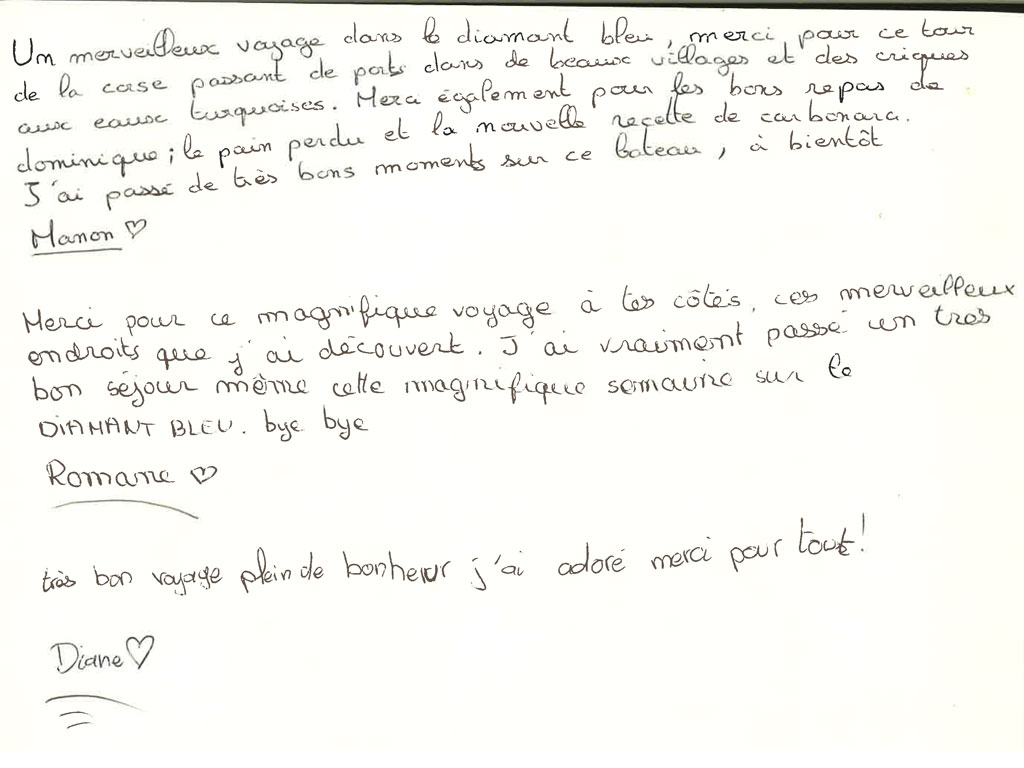 Un merveilleux voyage dans le diamant bleu, merci pour ce tour
de la corse passant de ports dans de beaux villages et des criques
aux eaux turquoises. Merci également pour les bons repas de
dominique ; le pain perdu et la nouvelle recette de carbonara.
J'ai passé de très bons moments sur ce bateau, à bientôt
Manon ♡
Merci pour ce magnifique voyage à tes côtés, ces merveilleux
endroits que j'ai découvert. J'ai vraiment passé un tres
bon séjour même cette magnifique semaine sur le
DIAMANT BLEU. bye bye
Romane ♡
très bon voyage plein de bonheur j'ai adoré merci pour tout!
Diane ♡